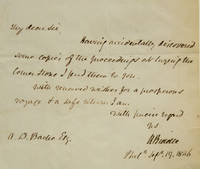 My dear Sir
Having accidentally discovered
some copies of the proceedings at laying the
Corner Stone I send them to you.
With renewed wishes for a prosperous
voyage & a safe return I am.
with sincere regard
Yrs
A. D. Bache Esq.
Phila Sept. 19. 1836